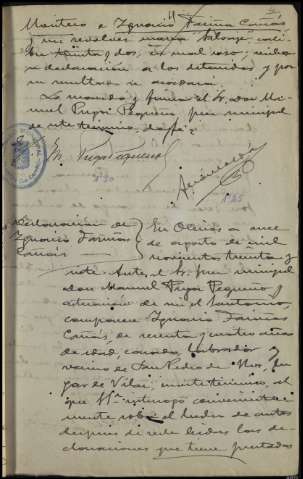 Montero e Ignacio Fariña Cañás
y un revolver marca
treinta y dos, en mal uso,
declaración a los detenidos, y por
su resultado se acordará.
Lo mandó y firma el Sr. don Ma-
nuel Puga Pequeño, juez municipal
de este termino, doy fe
M. Puga Pequeño
Declaración de
Ignacio Fariñas
Cañás
En Oleiros a once
de agosto de mil
novecientos treinta y
siete. Ante el Sr. juez municipal
don Manuel Puga Pequeño y
actuación de mi el Secretario,
comparece Ignacio Fariñas
Cañás, de sesenta y cuatro años
de edad, casado, labrador y
vecino de San Pedro de Nos, lu-
gar de Vilar, en este termino, el
que Sª interrogó conveniente-
mente sobre el hecho de autos
despues de serle leidas las de-
claraciones que tiene prestadas